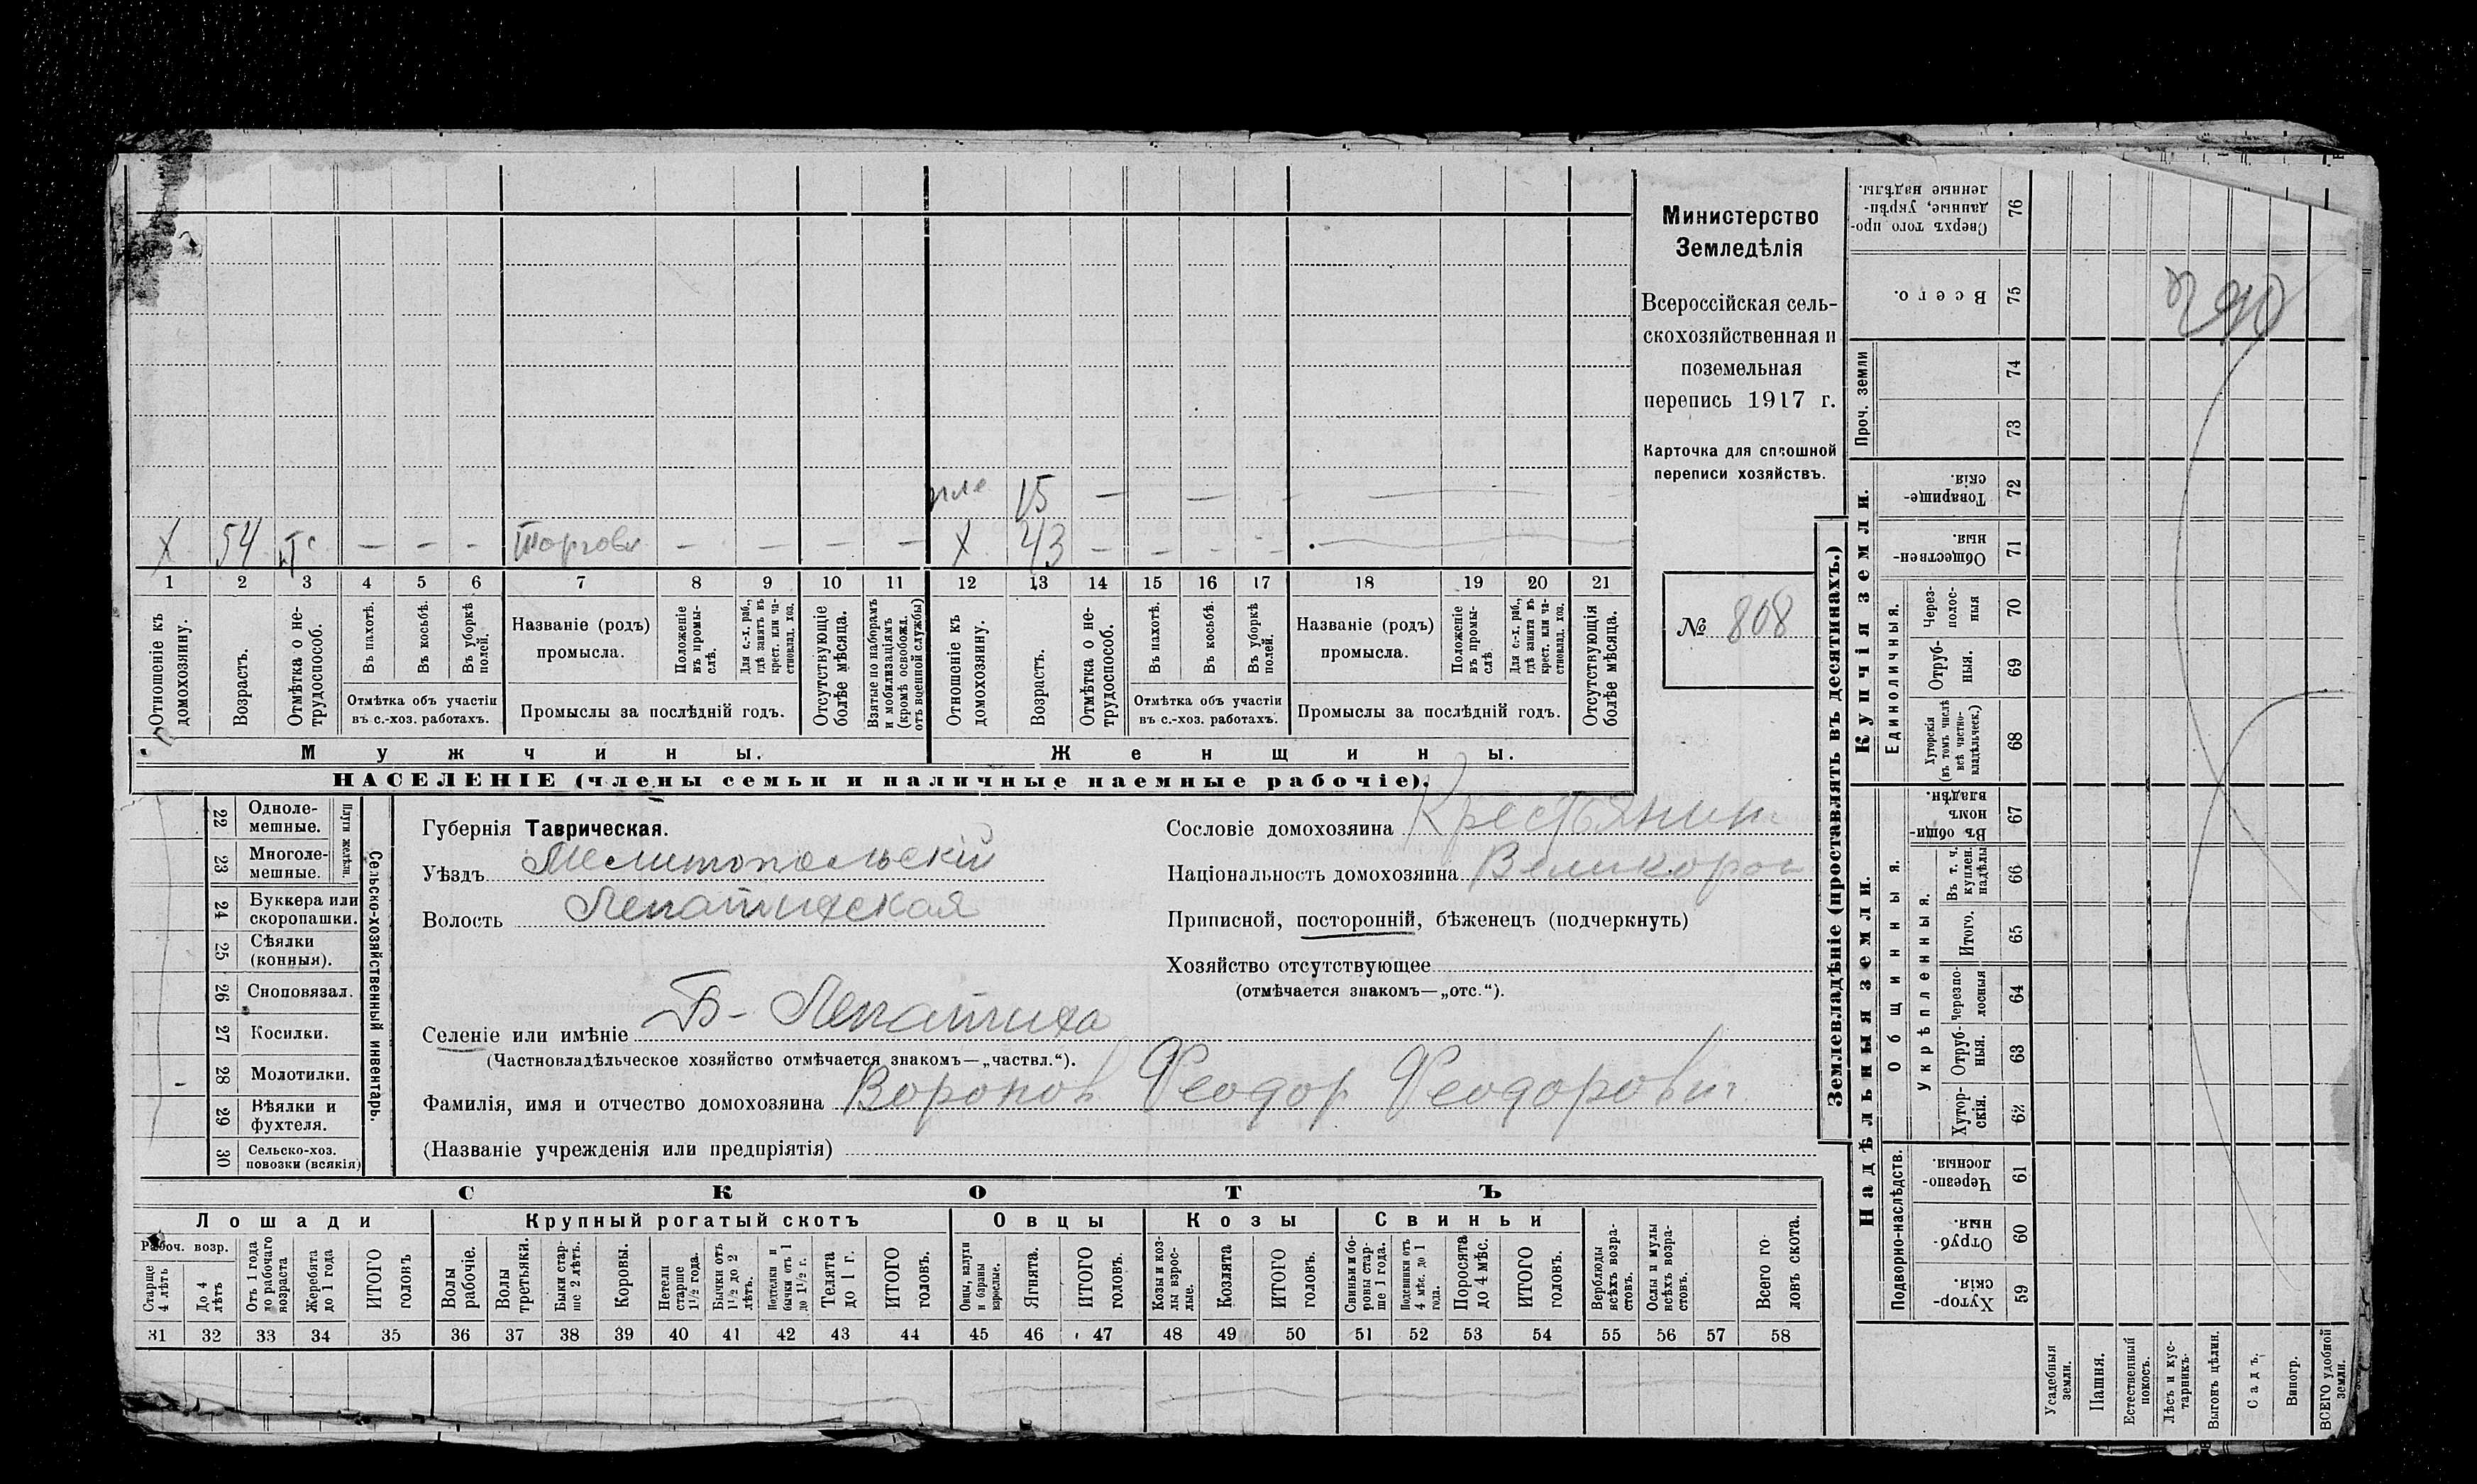 пле 15 — — — —
Х 54 — — — Торговл — — — — Х 43 — — — —
1 2 3 4 5 6 7 8 9 10 11 12 13 14 15 16 17 18 19 20 21
Отношеніе къ домохозяину.
Возрастъ.
Отмѣтка о не-
трудоспособ.
Въ пахотѣ.
Въ косьбѣ.
Въ уборкѣ
полей.
Отмѣтка объ участіи
въ с.-хоз. работахъ.
Названіе (родъ)
промысла.
Положеніе
въ промы-
слѣ.
Для с.-х. раб.,
гдѣ занятъ въ
крест. или ча-
стновлад. хоз.
Промыслы за послѣдній годъ.
Отсутствующіе
болѣе мѣсяца.
Взятые по наборамъ
и мобилизаціямъ
(кромѣ освобожд.
отъ военной службы)
Отношеніе къ
домохозяину.
Возрастъ.
Отмѣтка о не-
трудоспособ.
Въ пахотѣ.
Въ косьбѣ.
Въ уборкѣ
полей.
Отмѣтка объ участіи
въ с.-хоз. работахъ.
Названіе (родъ)
промысла.
Положеніе
въ промы-
слѣ
Для с.-х. раб.,
гдѣ занята въ
крест. или ча-
стновлад. хоз.
Промыслы за послѣдній годъ.
Отсутствующія
болѣе мѣсяца.
Мужчины.
Женщины.
НАСЕЛЕНІЕ (члены семьи и наличные наемные рабочіе).
Министерство
Земледѣлія
Всероссійская сель-
скохозяйственная и
поземельная
перепись 1917 г.
Карточка для сплошной
переписи хозяйствъ.
№ 808
22 Одноле-
мешные.
23 Многоле-
мешные.
Плуги желѣзн.
24 Буккера или
скоропашки.
25 Сѣялки
(конныя).
26 Сноповязал.
27 Косилки.
28 Молотилки.
29 Вѣялки и
фухтеля.
30 Сельско-хоз.
повозки (всякія)
Сельско-хозяйственный инвентарь.
Губернія Таврическая.
Уѣздъ Мелитопольскій
Волость Лепатихская
Селеніе или имѣніе Б- Лепатиха
(Частновладѣльческое хозяйство отмѣчается знакомъ—„частвл.“).
Фамилія, имя и отчество домохозяина Воронов Феодор Феодорович
(Названіе учрежденія или предпріятія)
Сословіе домохозяина Крестьянин
Національность домохозяина Великорос
Приписной, посторонній, бѣженецъ (подчеркнуть)
Хозяйство отсутствующее
(отмѣчается знакомъ—„отс.“).
СКОТЪ
Лошади
Крупный рогатый скотъ
Овцы
Козы
Свиньи
Рабоч. возр.
Старше
4 лѣтъ
До 4
лѣтъ
Отъ 1 года
до рабочаго
возраста
Жеребята
до 1 года
ИТОГО
головъ
Волы
рабочіе.
Волы
третьяки.
Быки стар-
ше 2 лѣтъ.
Коровы.
Нетели
старше
1½ года.
Бычки отъ
1½ до 2
лѣтъ.
Подтелки и
бычки отъ 1
до 1½ г.
Телята
до 1 г.
ИТОГО
головъ.
Овцы, валухи
и бараны
взрослые.
Ягнята.
ИТОГО
головъ.
Козы и коз-
лы взрос-
лые.
Козлята
ИТОГО
головъ.
Свиньи и бо-
ровы стар-
ше 1 года.
Подсвинки отъ
4 мѣс. до 1
года.
Поросята
до 4 мѣс.
ИТОГО
головъ.
Верблюды
всѣхъ возра-
стовъ.
Ослы и мулы
всѣхъ возра-
стовъ.
Всего го-
ловъ скота.
31 32 33 34 35 36 37 38 39 40 41 42 43 44 45 46 47 48 49 50 51 52 53 54 55 56 57 58
Землевладѣніе (проставлять въ десятинахъ.)
Купчія земли.
Надѣльныя земли.
Сверхъ того про-
данные, укрѣп-
ленные надѣлы.
76
Всего.
75
Проч. земли
74
73
Товарище-
скія.
72
Обществен-
ныя.
71
Единоличныя.
Через-
полос-
ныя
70
Отруб-
ныя.
69
Хуторскія
(въ томъ числѣ
всѣ частно-
владѣльческ.)
68
Общинныя.
Въ общин-
номъ
владѣн.
67
Укрѣпленныя.
Въ т. ч.
куплен.
надѣлы
66
Итого.
65
Черезпо-
лосныя
64
Отруб-
ныя.
63
Хутор-
скія.
62
Подворно-наслѣдств.
Черезпо-
лосныя.
61
Отруб-
ныя.
60
Хутор-
скія.
59
Усадебныя
земли.
Пашня.
Естественный
покосъ.
Лѣсъ и кус-
тарникъ.
Выгонъ цѣлин.
Садъ.
Виногр.
ВСЕГО удобной
земли.